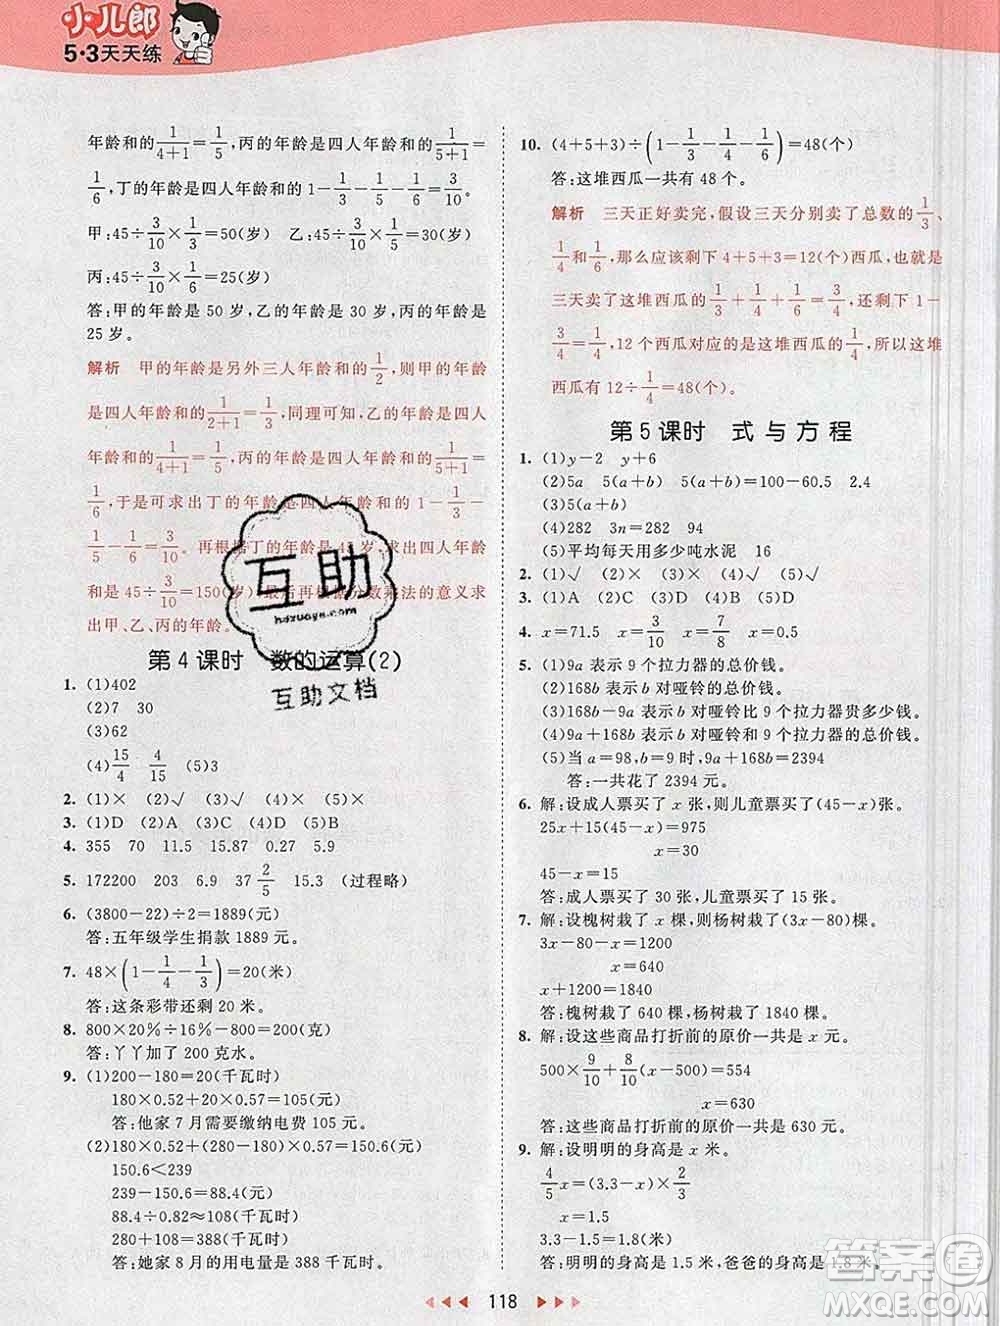 小儿郎
5·3天天练
年龄和的1/(4+1)=1/5,丙的年龄是四人年龄和的1/(5+1)=
1/6,丁的年龄是四人年龄和的1-3/10-1/5-1/6=1/3
甲:45÷3/10×1/3=50(岁) 乙:45÷3/10×1/5=30(岁)
丙:45÷3/10×1/6=25(岁)
答:甲的年龄是 50 岁,乙的年龄是 30 岁,丙的年龄是
25 岁。
解析 甲的年龄是另外三人年龄和的1/2,则甲的年龄
是四人年龄和的1/(2+1)=1/3,同理可知,乙的年龄是四人
年龄和的1/(4+1)=1/5,丙的年龄是四人年龄和的1/(5+1)=
1/6,于是可求出丁的年龄是四人年龄和的1-1/3-
1/5-1/6=3/10。再根据丁的年龄 45 岁,求出四人年龄
和是 45÷3/10=150(岁),最后再根据分数乘法的意义求
出甲、乙、丙的年龄。
第 4 课时 数的运算(2)
1. (1)402
(2)7 30
(3)62
(4)15/4 4/15 (5)3
2. (1)× (2)√ (3)√ (4)√ (5)×
3. (1)D (2)A (3)C (4)A (5)D
4. 355 70 11.5 15.87 0.27 5.9
5. 172200 203 6.9 37 2/5 15.3 (过程略)
6. (3800-22)÷2=1889(元)
答:五年级学生捐款 1889 元。
7. 48×(1-1/4-1/3)=20(米)
答:这条彩带还剩 20 米。
8. 800×20%÷16%-800=200(克)
答:丫丫加了 200 克水。
9. (1)200-180=20(千瓦时)
180×0.52+20×0.57=105(元)
答:他家 7 月需要缴纳电费 105 元。
(2)180×0.52+(280-180)×0.57=150.6(元)
150.6<239
239-150.6=88.4(元)
88.4÷0.82≈108(千瓦时)
280+108=388(千瓦时)
答:她家 8 月的用电量是 388 千瓦时。
10. (4+5+3)÷(1-1/3-1/4-1/6)=48(个)
答:这堆西瓜一共有 48 个。
解析 三天正好卖完,假设三天分别卖了总数的1/3、
1/4和1/6,那么应该剩下 4+5+3=12(个)西瓜,也就是
三天卖了这堆西瓜的1/3+1/4+1/6=3/4,还剩下 1-
3/4=1/4,12 个西瓜对应的是这堆西瓜的1/4,所以这堆
西瓜有 12÷1/4=48(个)。
第 5 课时 式与方程
1. (1)y-2 y+6
(2)5a 5(a+b) 5(a+b)=100-60.5 2.4
(3)5(a+b)
(4)282 3n=282 94
(5)平均每天用多少吨水泥 16
2. (1)√ (2)× (3)√ (4)× (5)√
3. (1)A (2)D (3)C (4)D (5)A
4. x=71.5 x=3/10 x=7/8 x=0.5
5. (1)9a 表示 9 个拉力器的总价钱。
(2)168b 表示 b 对哑铃的总价钱。
(3)168b-9a 表示 b 对哑铃比 9 个拉力器贵多少钱。
(4)9a+168b 表示 b 对哑铃和 9 个拉力器的总价钱。
(5)当 a=98,b=9 时,9a+168b=2394
答:一共花了 2394 元。
6. 解:设成人票买了 x 张,则儿童票买了(45-x)张。
25x+15(45-x)=975
x=30
45-x=15
答:成人票买了 30 张,儿童票买了 15 张。
7. 解:设槐树栽了 x 棵,则杨树栽了(3x-80)棵。
3x-80-x=1200
x=640
x+1200=1840
答:槐树栽了 640 棵,杨树栽了 1840 棵。
8. 解:设这些商品打折前的原价一共是 x 元。
500×9/10+8/10(x-500)=554
x=630
答:这些商品打折前的原价一共是 630 元。
9. 解:设明明的身高是 x 米。
4/5x=(3.3-x)×2/3
x=1.5
3.3-1.5=1.8(米)
答:明明的身高是 1.5 米,爸爸的身高是 1.8 米。
118
互助
hdzuoye.com
互助文档
答案圈
MXQE.COM